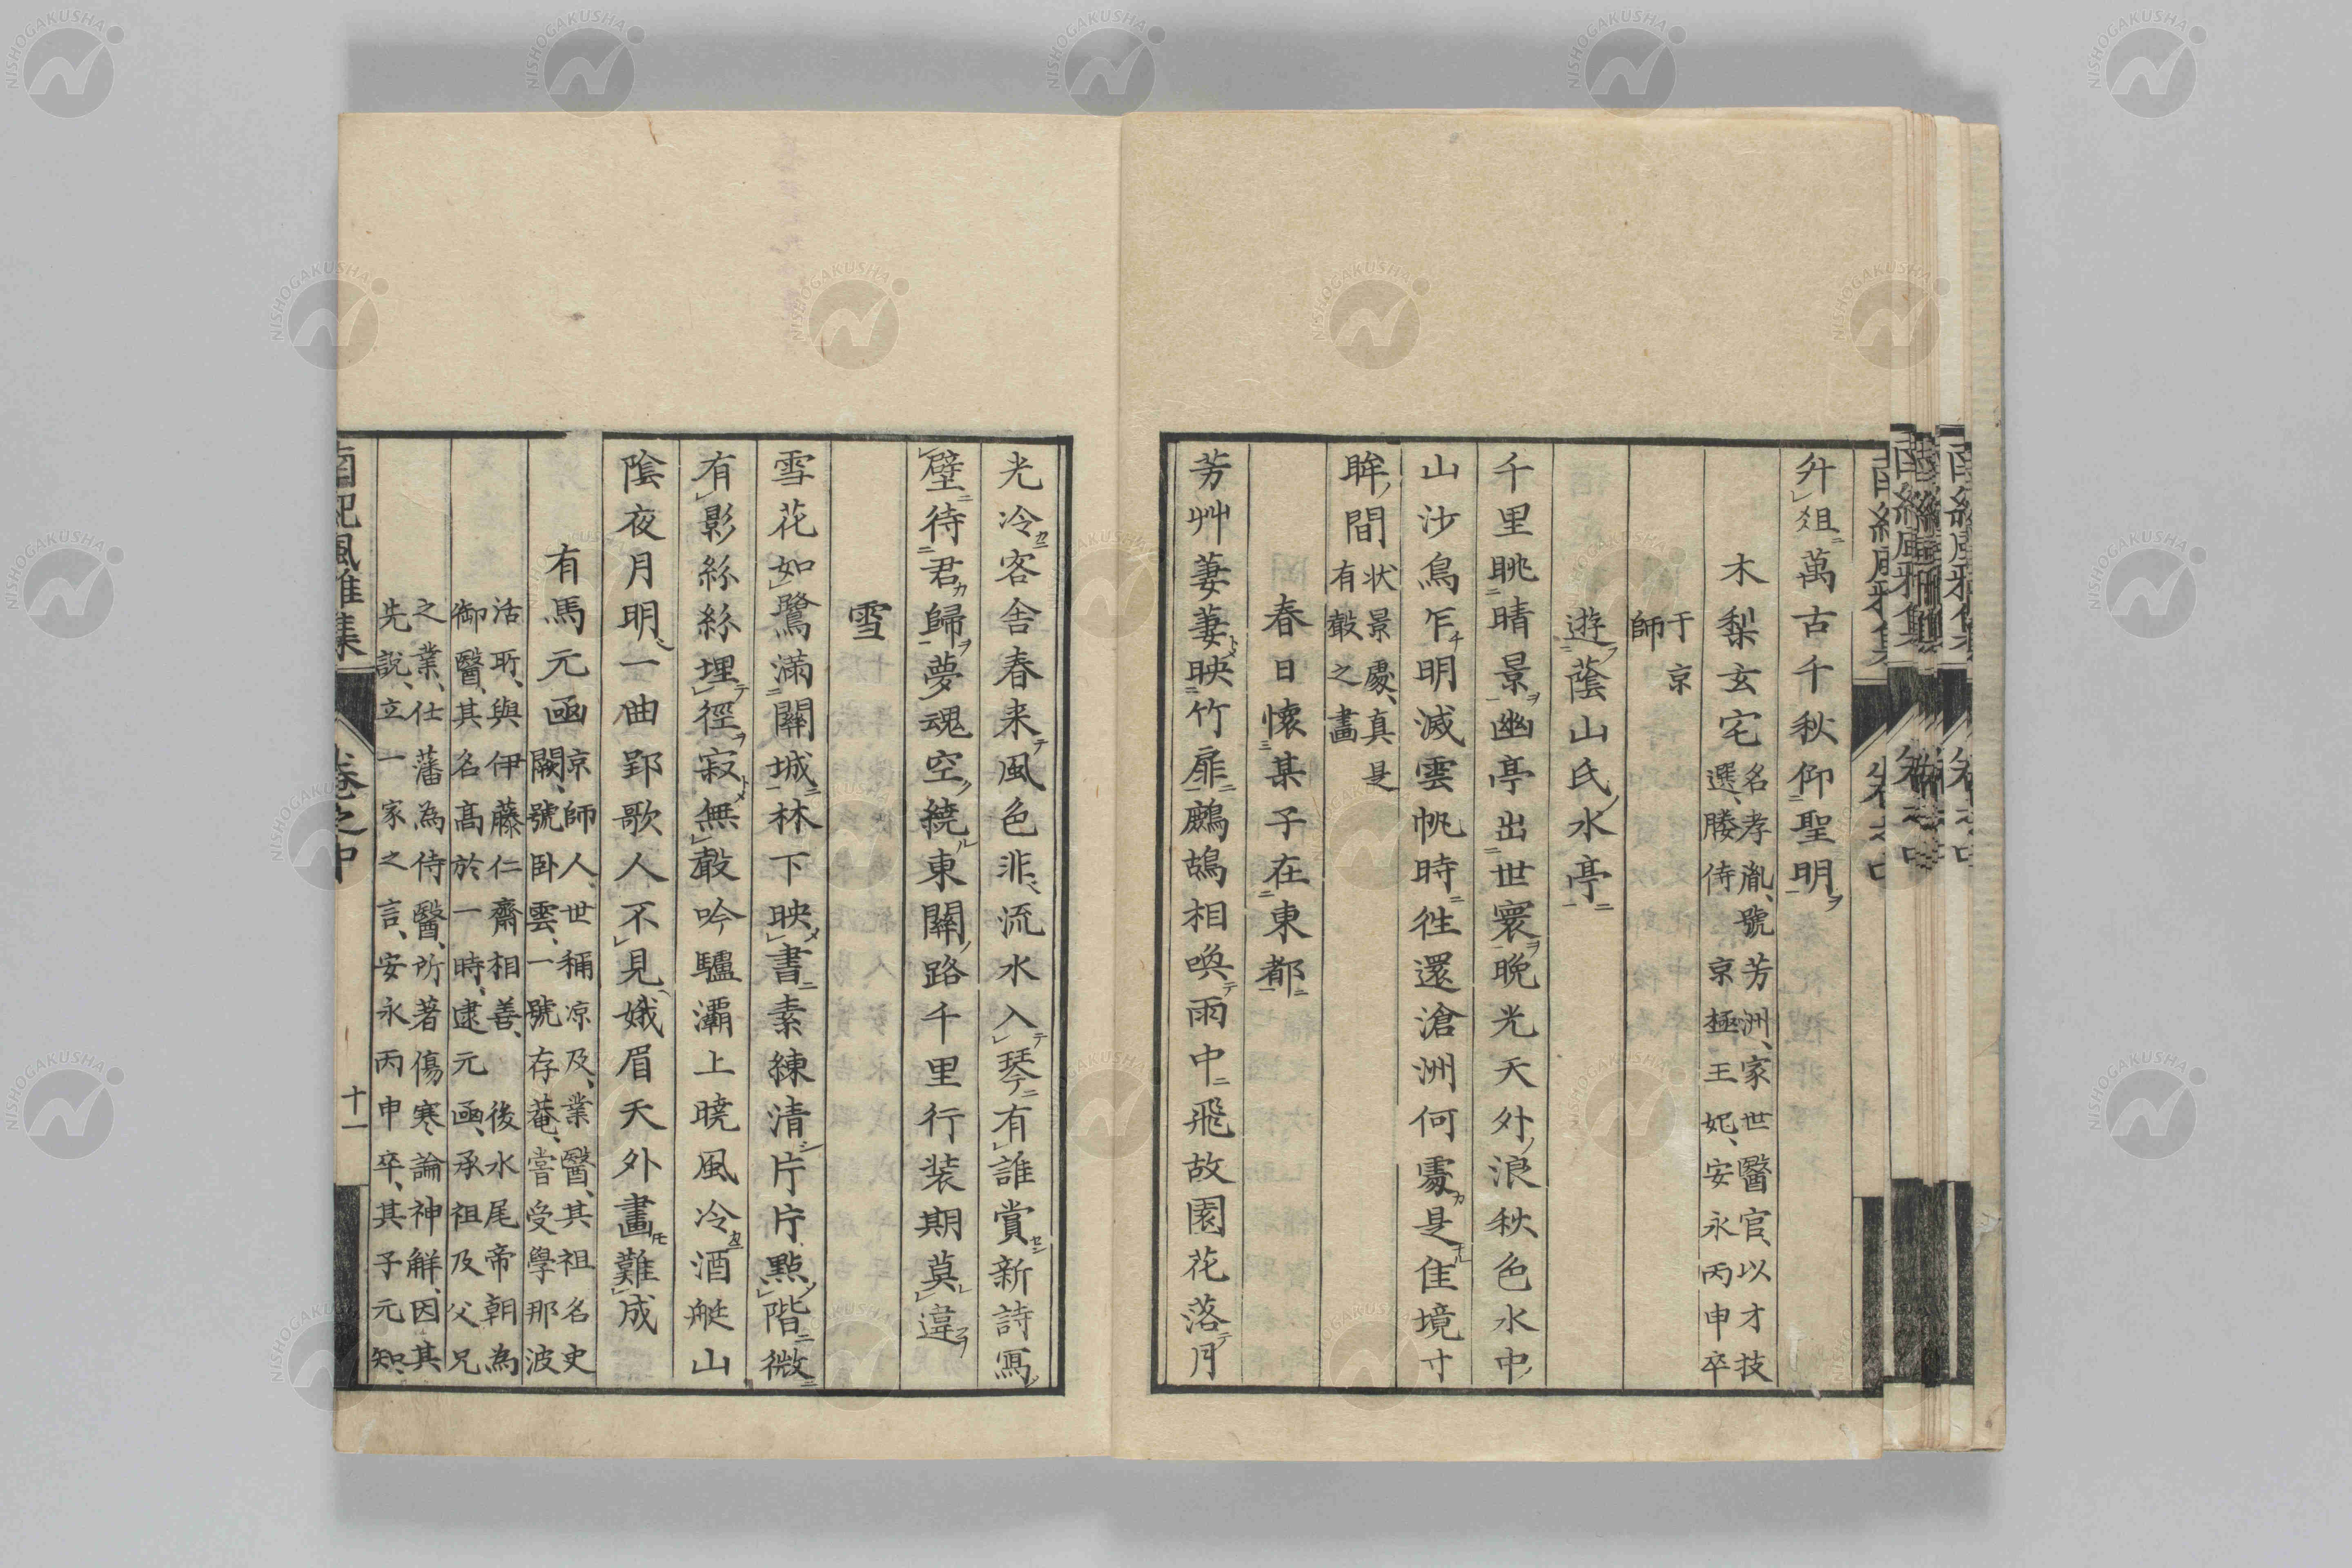 升俎萬古千秋仰聖明
木梨玄宅 名孝胤、號芳洲、家世醫官、以才技
選、媵侍 京極王妃、安永丙申卒
于京
師
遊蔭山氏水亭
千里眺晴景幽亭出世寰晩光天外浪秋色水中
山沙鳥乍明滅雲帆時徃還滄洲何處是佳境寸
眸間 状景處、真是
有聲之畫
春日懷某子在東都
芳艸萋萋映竹扉鷓鴣相喚雨中飛故園花落月
光冷客舎春来風色非流水入琴有誰賞新詩寫
壁待君歸夢魂空繞東關路千里行装期莫違
雪
雪花如鷺滿關城林下映書素練清片片點階微
有影絲絲埋徑寂無聲吟驢灞上暁風冷酒艇山
陰夜月明一曲郢歌人不見娥眉天外畫難成
有馬元函 京師人、世稱凉及、業醫、其祖名史
闕、號卧雲、一號存菴、嘗受學那波
活所、與伊藤仁齋相善、後水尾帝朝為
御醫、其名髙於一時、逮元函、承祖及父兄
之業、仕 藩為侍醫、所著傷寒論神解、因其
先說、立一家之言、安永丙申卒、其子元知、
南紀風雅集 卷之中 十一